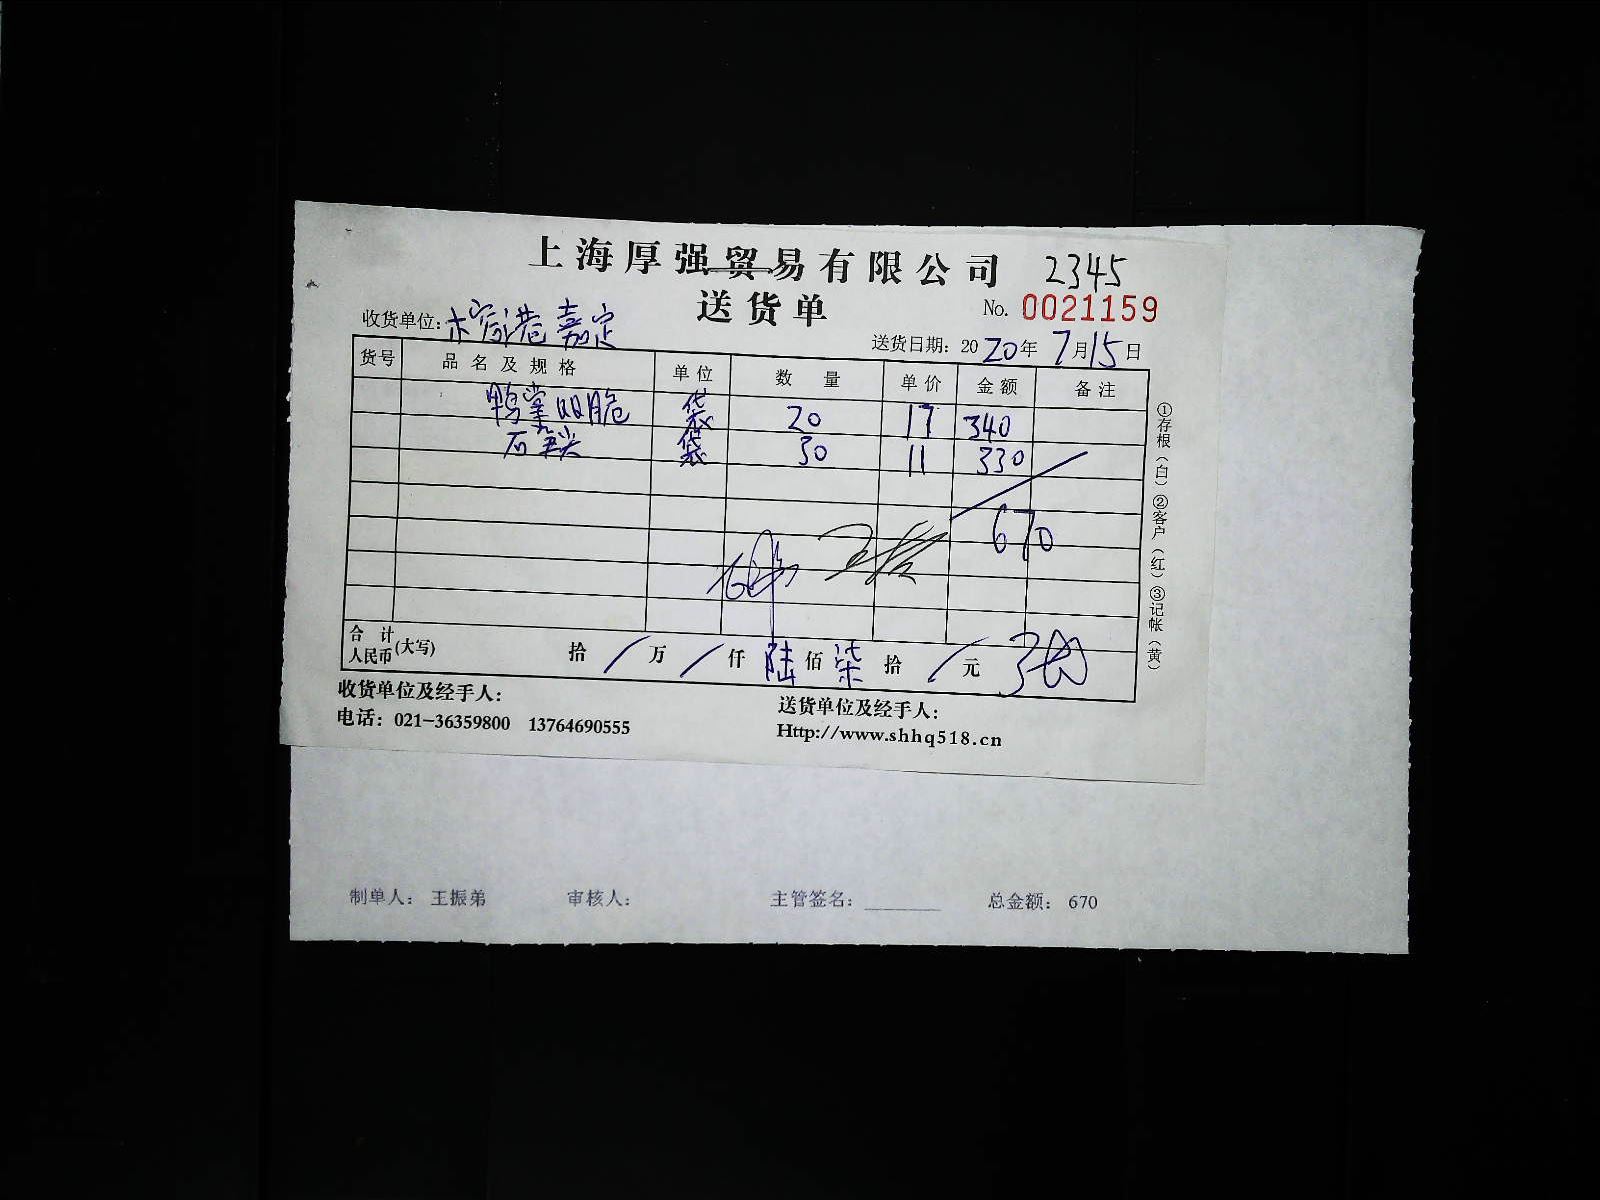 上海厚强贸易有限公司 2345
送货单 No. 0021159
收货单位: 嘉定 送货日期: 2020年7月15日
货号 品名及规格 单位 数量 单价 金额 备注
鸭掌双脆 袋 20 17 340
石 袋 30 11 330
670
合计人民币(大写) 拾 / 万 / 仟 陆 佰 柒 拾 / 元
①存根(白)②客户(红)③记帐(黄)
收货单位及经手人: 送货单位及经手人:
电话: 021-36359800 13764690555 Http://www.shhq518.cn
制单人: 王振弟 审核人: 主管签名: ________ 总金额: 670